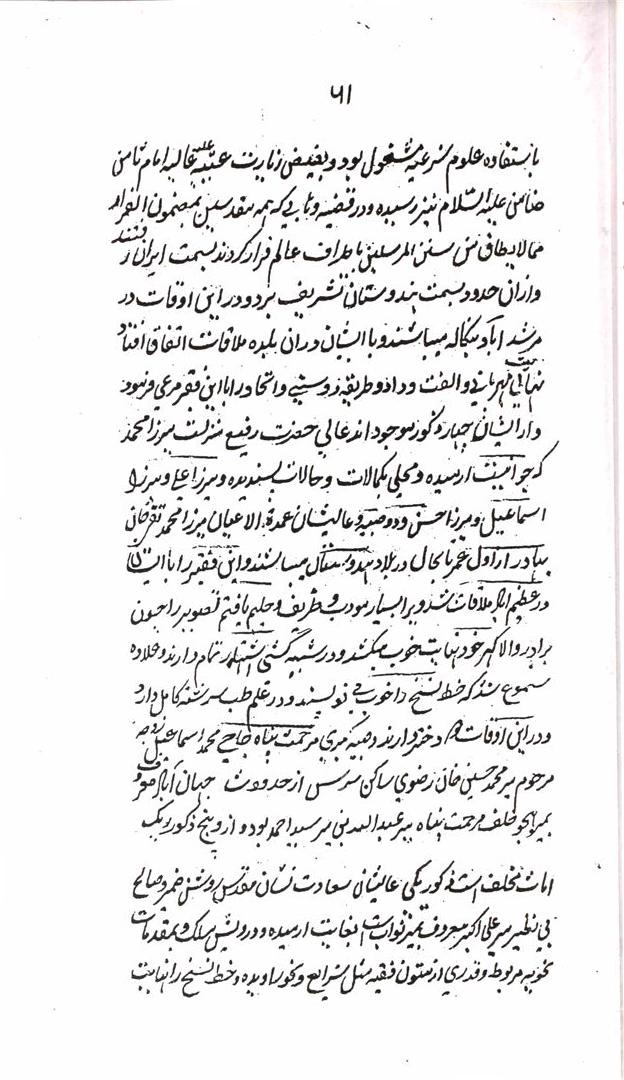 ۶۱
باستفاده علوم شرعیه مشغول بود و بفیض زیارت عتبه علیه عالیه امام ثامن
ضامن علیه السّلام نیز رسیده و در قضیه وبایی که همه مقدسین بمضمون الفرار
ممالایطاق من سنن المرسلین باطراف عالم فرار کردند بسمت ایران رفتند
و ازان حدود بسمت هندوستان تشریف برد و در این اوقات در
مرشد آباد بنگاله میباشند و با ایشان دران بلده ملاقات اتفاق افتاد
نهایت مهربانی و الفت و داد و طریقه دوستی و اتحاد را با این فقیر مرعی فرمود
و از ایشان چهار ذکور موجود اند عالی حضرت رفیع منزلت میرزا محمد
که جوانیست ارمیده و محلی بکمالات و حالات پسندیده و میرزا علی و میرزا
اسماعیل و میرزا حسن و دو صبیه و عالیشان عمدة الاعیان میرزا محمد تقی خان
بهادر از اول عمر تا بحال در بلاد هندوستان میباشند و این فقیر را با ایشان
در عظیم اباد ملاقات شد و بر ا بسیار مودب و ظریف و حلیم یافتم تصویر را چون
برادر والا گهر خود بغایت خوب میکشند و در شبیه کشی اشتهار تمام دارند و علاوه
مسموع شد که خط نسخ را خوب می نویسند و در علم طب سررشته کامل دارد
و در این اوقات دختر دارند و صبیه کبری مرحمت پناه حاجی محمد اسماعیل زوجه
مرحوم میر محمد حسین خان رضوی ساکن سرسی از حدودت جهان آباد معروف
بمیر بهجو خلف مرحمت پناه میر عبدالله بن میر سید احمد بود و از و پنج ذکور و یک
اناث مخلف است ذکور یکی عالیشان سعادت نشان مقدس روشن ضمیر و صالح
بی نظیر میر علی اکبر معروف بمیر نواب است بغایت ارمیده و درویش مسلک و بمقدمات
نحویه مربوط و قدری از متون فقیه مثل شرایع و نحو را دیده و خط نسخ را نهایت